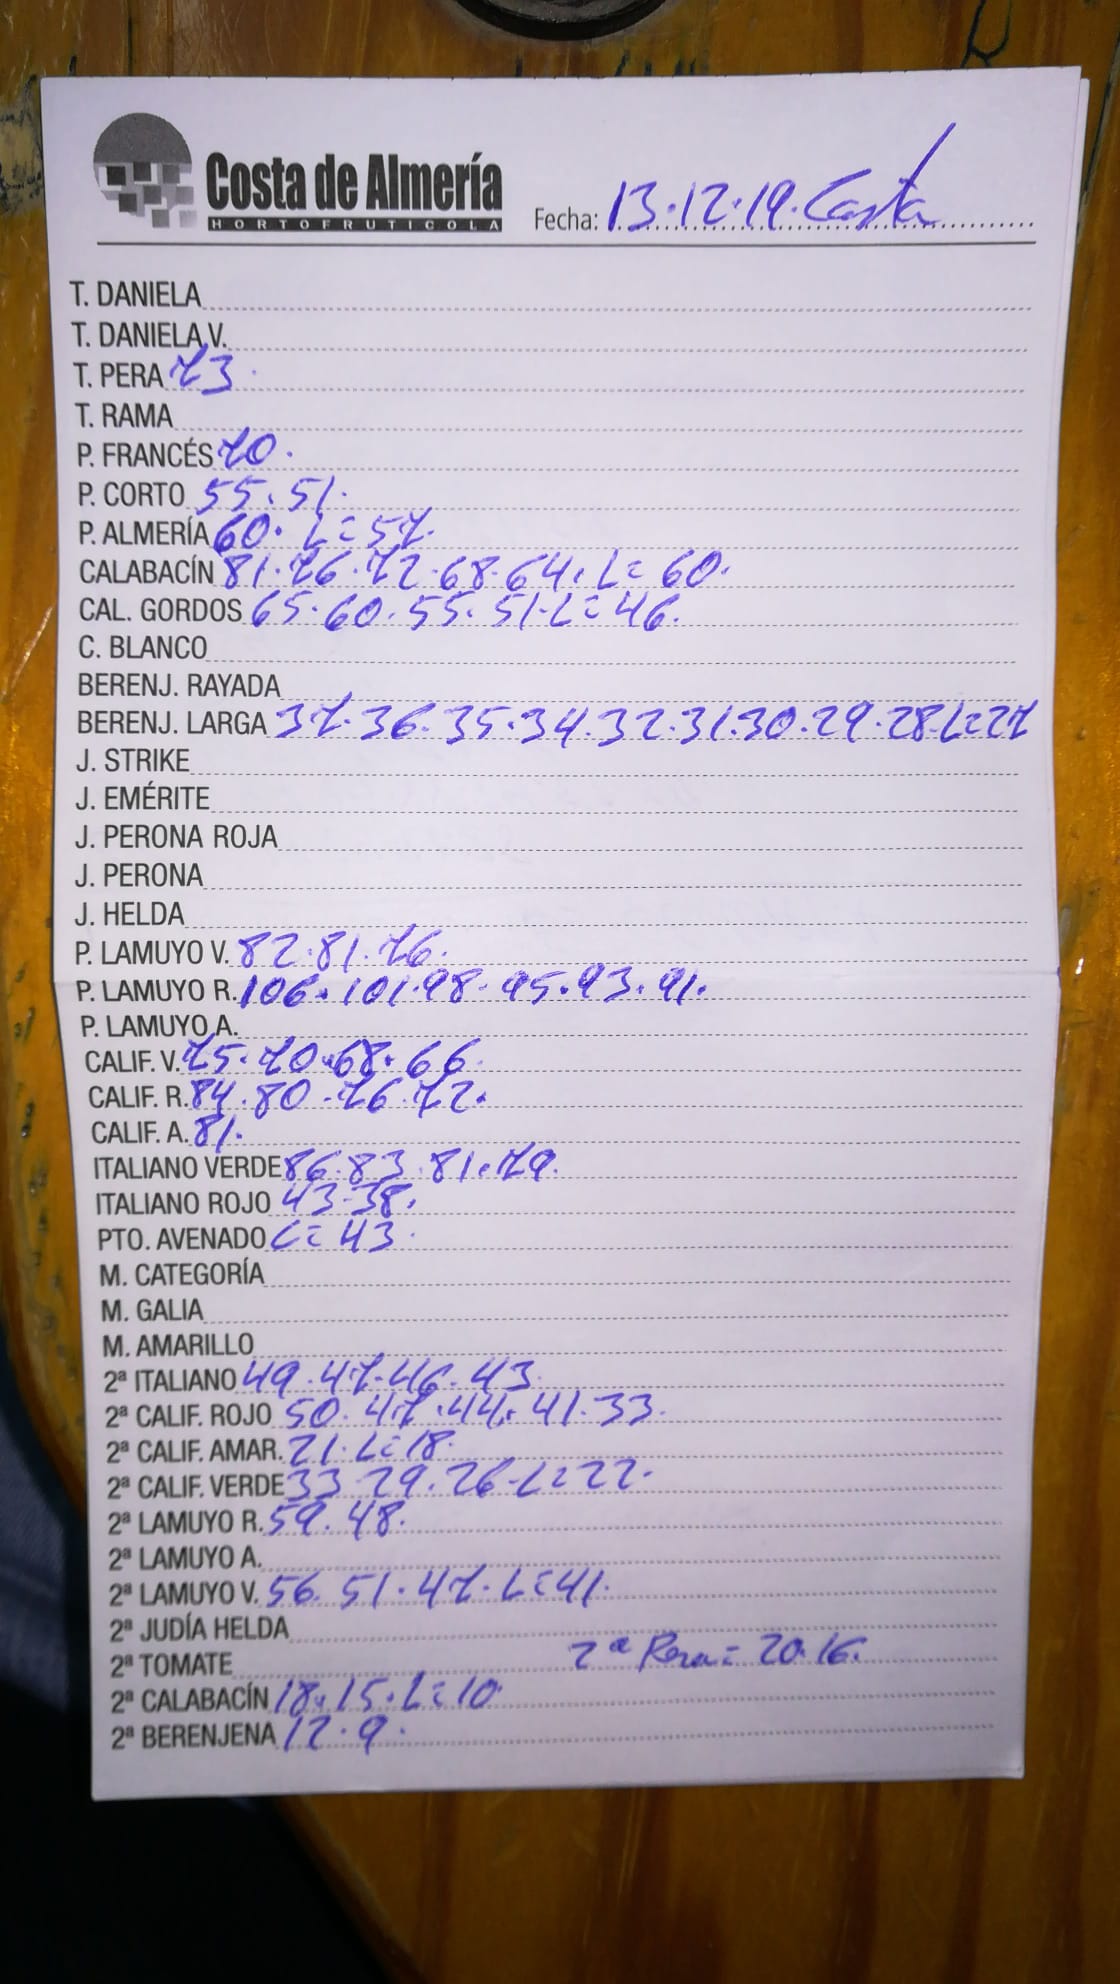 Costa de Almería
HORTOFRUTICOLA
Fecha: 13.12.19. Costa
T. DANIELA
T. DANELA V.
T. PERA 73.
T. RAMA
P. FRANCÉS 70.
P. CORTO 55.51.
P. ALMERÍA 60. L=57.
CALABACÍN 81.76.72.68.64. L=60.
CAL. GORDOS 65.60.55.51.L=46.
C. BLANCO
BERENJ. RAYADA
BERENJ. LARGA 37.36.35.34.32.31.30.29.28.L=27
J. STRIKE
J. EMÉRITE
J. PERONA ROJA
J. PERONA
J. HELDA
P. LAMUYO V. 82.81.76.
P. LAMUYO R. 106.101.98.95.93.91.
P. LAMUYO A.
CALIF. V. 75.70.68.66.
CALIF. R. 84.80.76.72.
CALIF. A. 81.
ITALIANO VERDE 86.83.81.79.
ITALIANO ROJO 43-38.
PTO. AVENADO L=43.
M. CATEGORÍA
M. GALIA
M. AMARILLO
2ª ITALIANO 49.47.46.43.
2ª CALIF. ROJO 50.47.44.41.33.
2ª CALIF. AMAR. 21.L=18.
2ª CALIF. VERDE 33.29.26.L=22.
2ª LAMUYO R. 59.48.
2ª LAMUYO A.
2ª LAMUYO V. 56.51.47.L=41.
2ª JUDÍA HELDA
2ª TOMATE 2ª Pera=20.16.
2ª CALABACÍN 18.15.L=10
2ª BERENJENA 12.9.